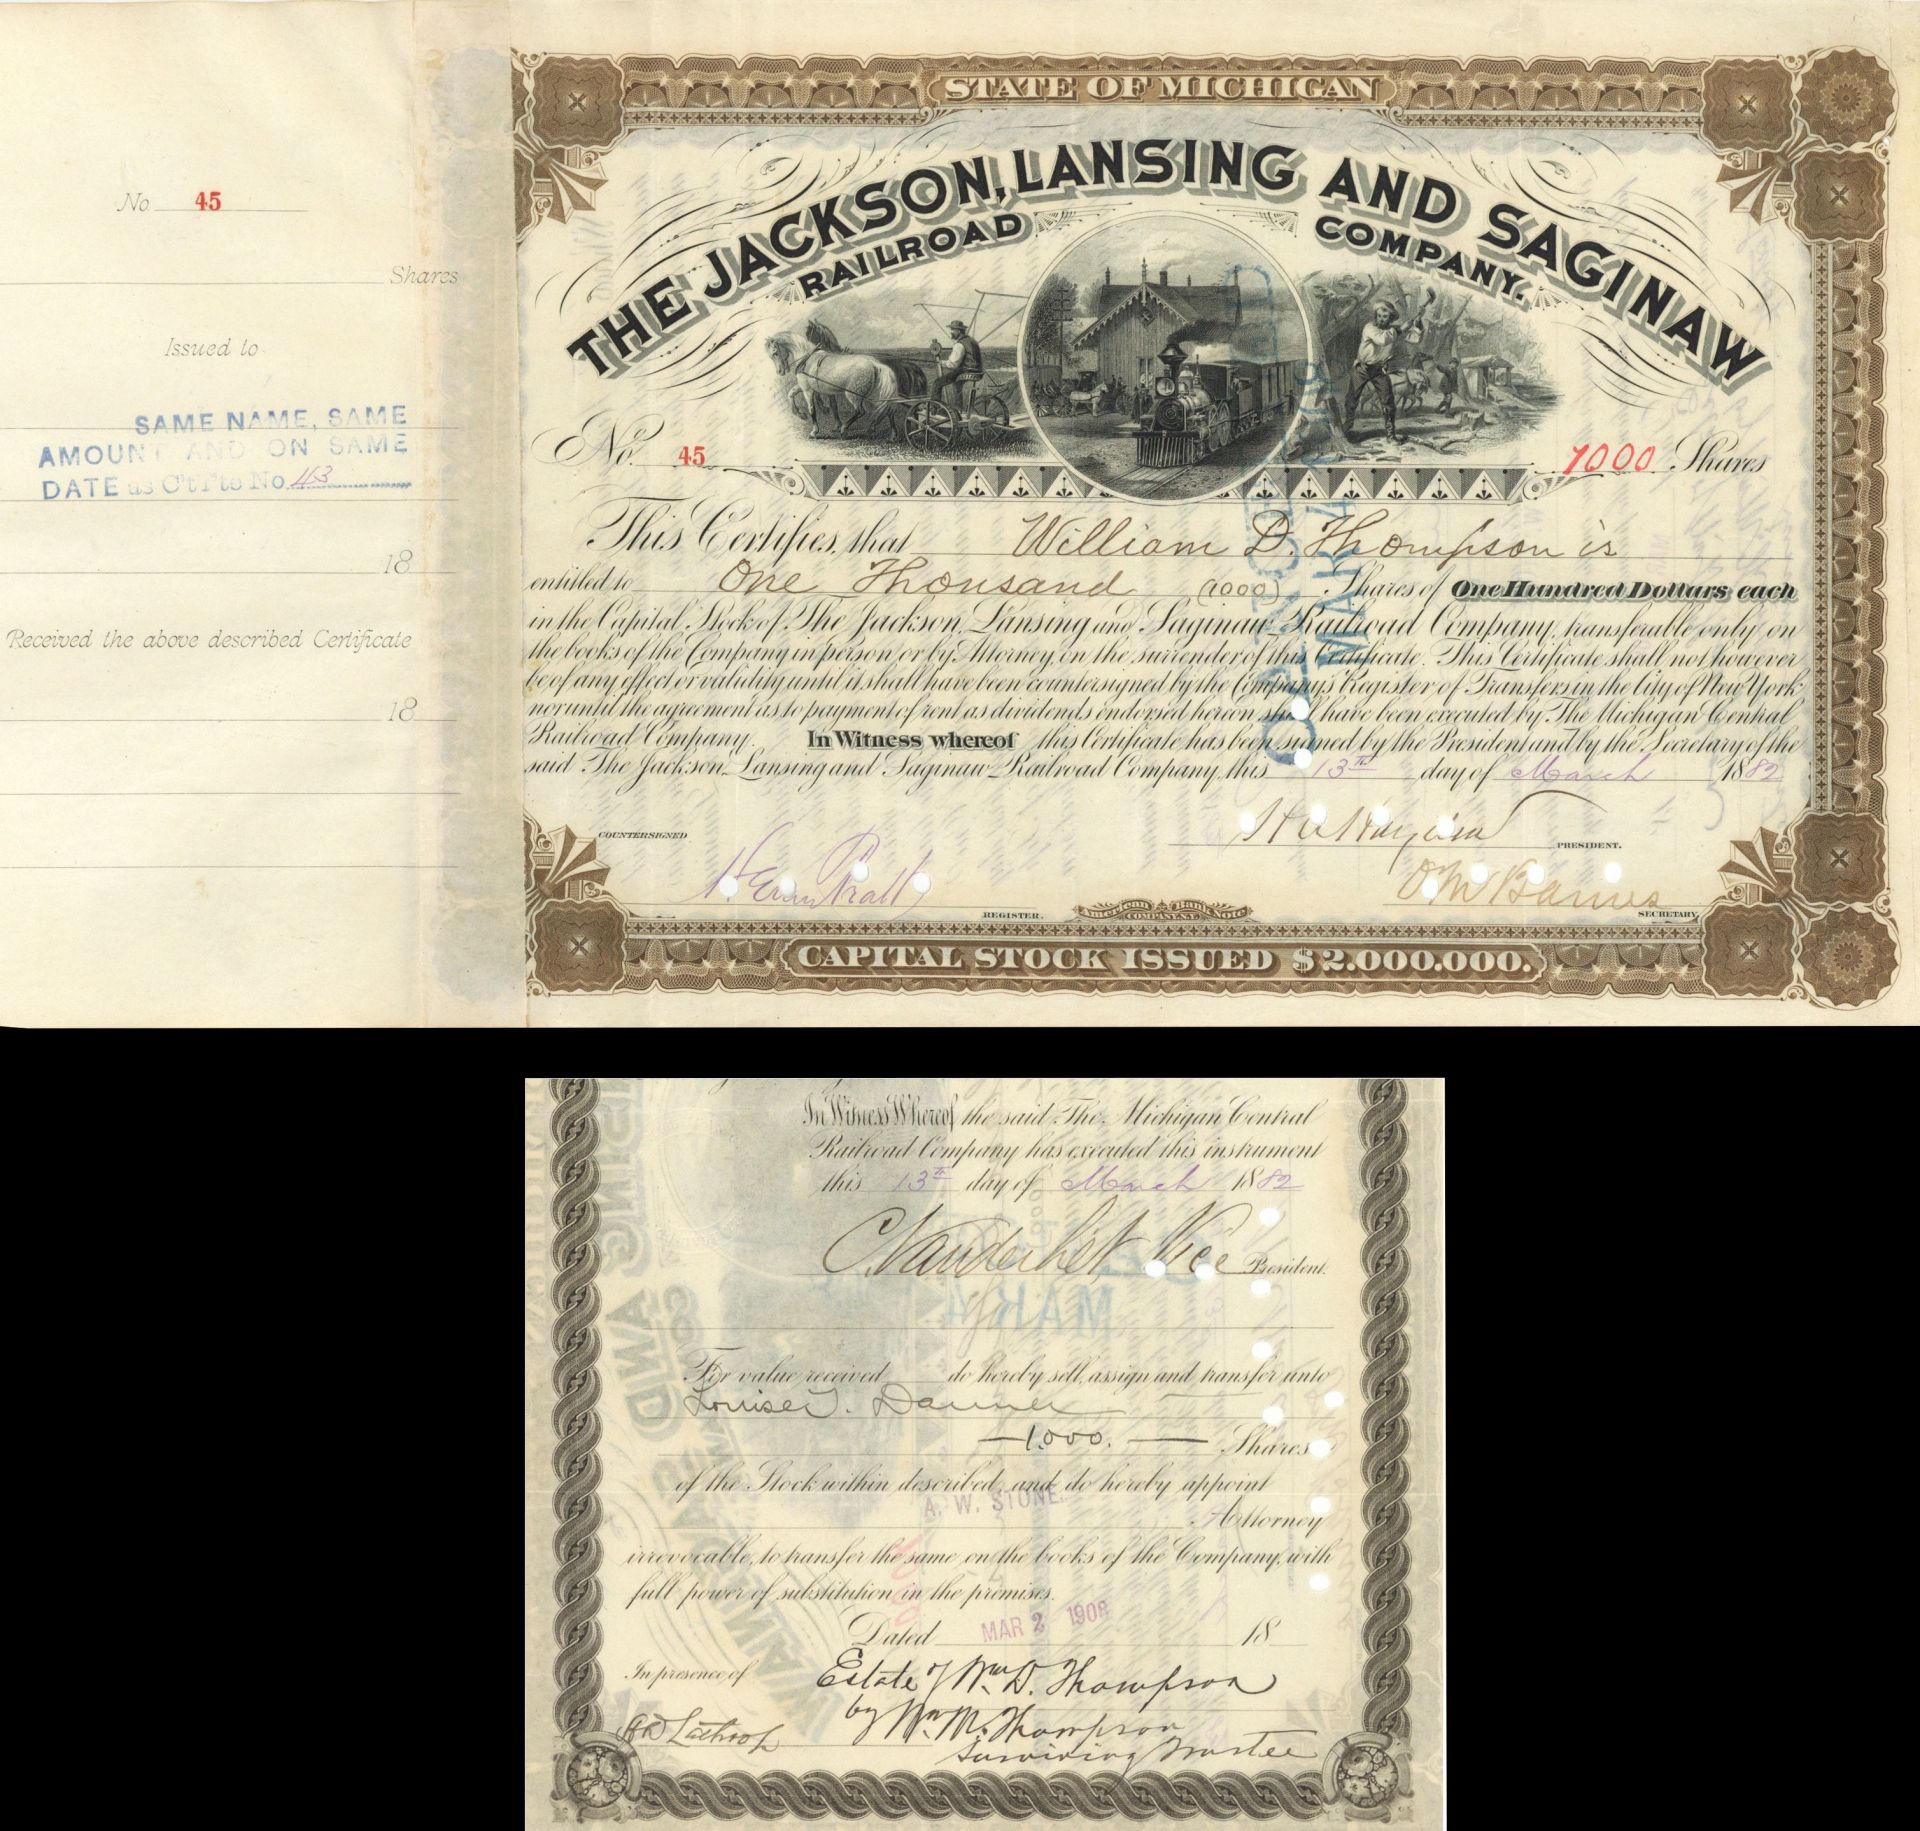 No. 45
Shares
Issued to
SAME NAME, SAME
AMOUNT AND ON SAME
DATE as C't'f'te No. 43
18
Received the above described Certificate
18
STATE OF MICHIGAN
THE JACKSON, LANSING AND SAGINAW
RAILROAD COMPANY.
No. 45
1000 Shares
This Certifies, that William D. Thompson is
entitled to One Thousand (1000) Shares of One Hundred Dollars each
in the Capital Stock of The Jackson, Lansing and Saginaw Railroad Company, transferable only on
the books of the Company in person or by Attorney, on the surrender of this Certificate. This Certificate shall not however
be of any effect or validity until it shall have been countersigned by the Company's Register of Transfers in the City of New York
nor until the agreement as to payment of rent as dividends endorsed hereon shall have been executed by The Michigan Central
Railroad Company. In Witness whereof this Certificate has been signed by the President and by the Secretary of the
said The Jackson, Lansing and Saginaw Railroad Company, this 13th day of March 1882
CANCELLED
MAR 4
COUNTERSIGNED
PRESIDENT.
REGISTER.
American Bank Note
COMPANY N.Y.
O M Barnes
SECRETARY
CAPITAL STOCK ISSUED $2.000.000.
In Witness Whereof the said The Michigan Central
Railroad Company has executed this instrument
this 13th day of March 1882
C. Vanderbilt Vice President.
MAR 4
For value received do hereby sell, assign and transfer unto
Louise J. Danner
1.000. Shares
of the Stock within described, and do hereby appoint
A. W. STONE.
Attorney
irrevocable, to transfer the same on the books of the Company, with
full power of substitution in the premises.
Dated MAR 2 1908 18
In presence of
Estate of Wm D. Thompson
by Wm M. Thompson
Surviving Trustee
Lathrop